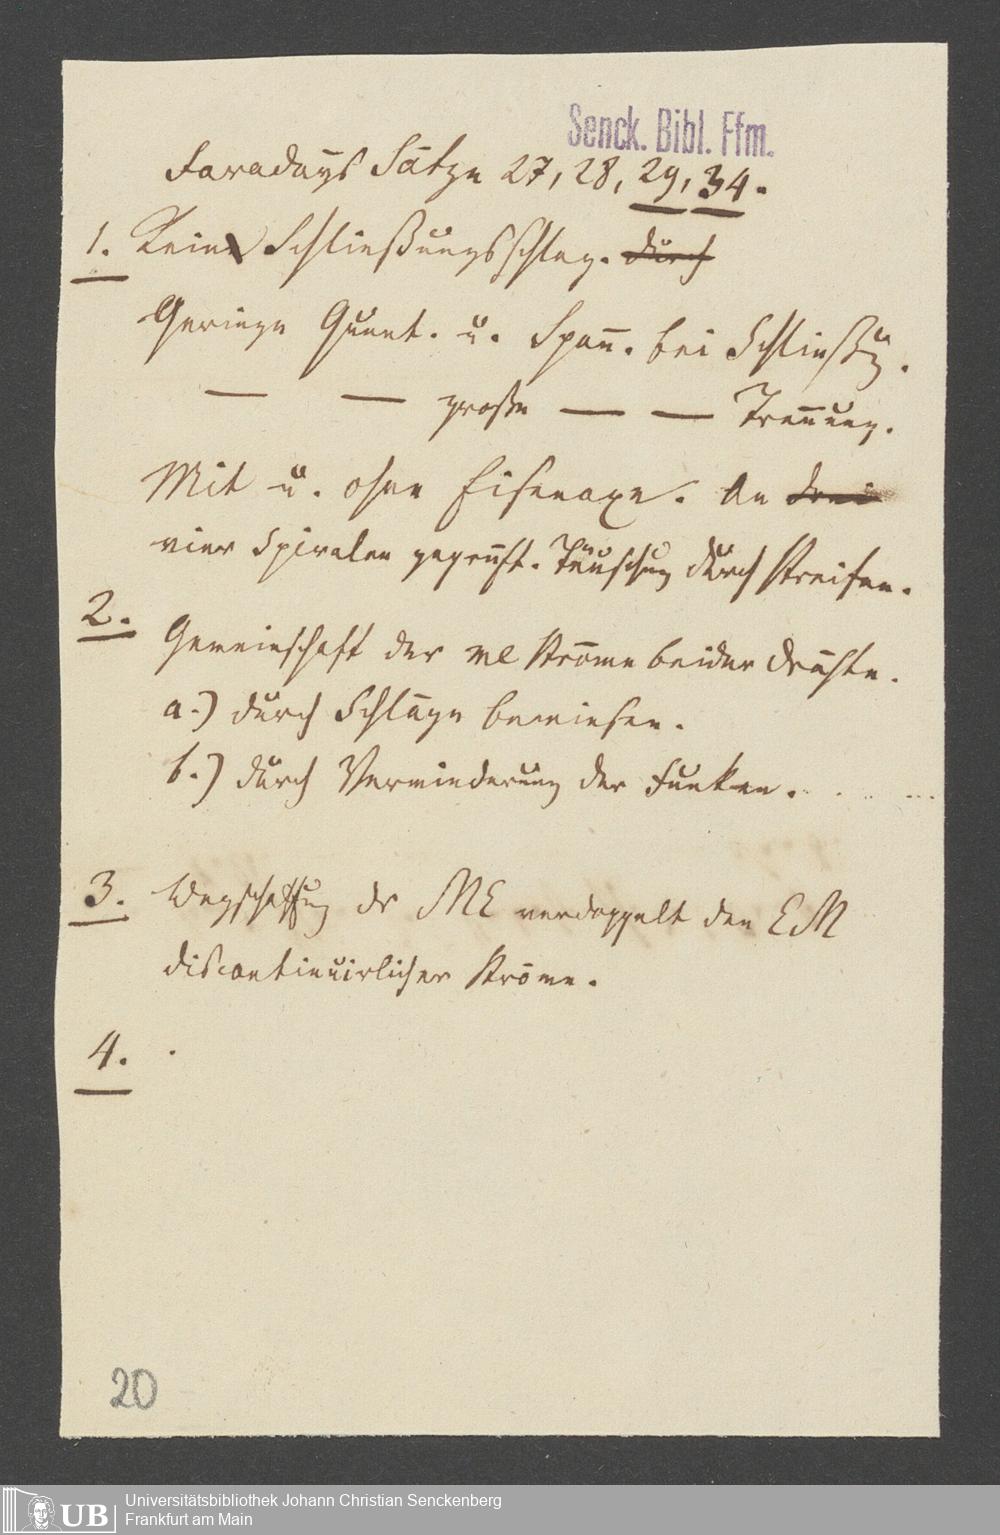 Senck. Bibl. Ffm.
Faradays Sätze 27, 28, 29, 34.
1. Kein Schließungsschlag. durch
Geringe Quant. u. Span̅. bei Schließg.
— — große — — Tren̅ung.
Mit u. ohne Eisenaxe. An drei
vier Spiralen geprüft. Täuschung durch Streifen.
2. Gemeinschaft der me Ströme beider Drähte.
a.) durch Schläge bewiesen.
b.) durch Verminderung der Funken.
3. Wegschaffung des ME verdoppelt den EM
discontinuirlicher Ströme.
4.
20
UB
Universitätsbibliothek Johann Christian Senckenberg
Frankfurt am Main